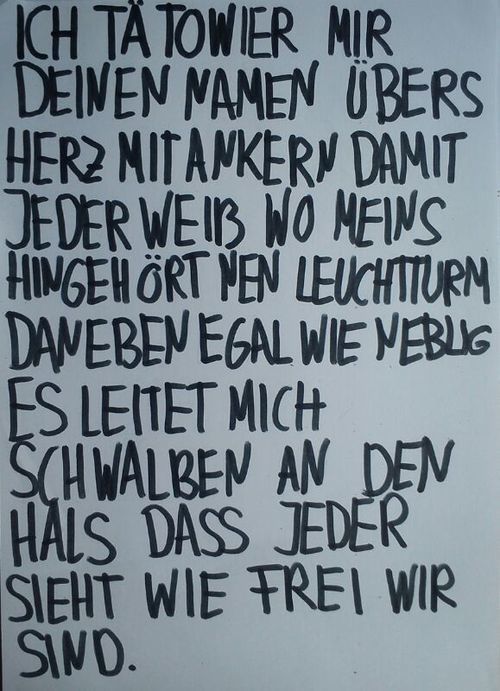 ICH TÄTOWIER MIR
DEINEN NAMEN ÜBERS
HERZ MIT ANKERN DAMIT
JEDER WEIß WO MEINS
HINGEHÖRT NEN LEUCHTTURM
DANEBEN EGAL WIE NEBLIG
ES LEITET MICH
SCHWALBEN AN DEN
HALS DASS JEDER
SIEHT WIE FREI WIR
SIND.